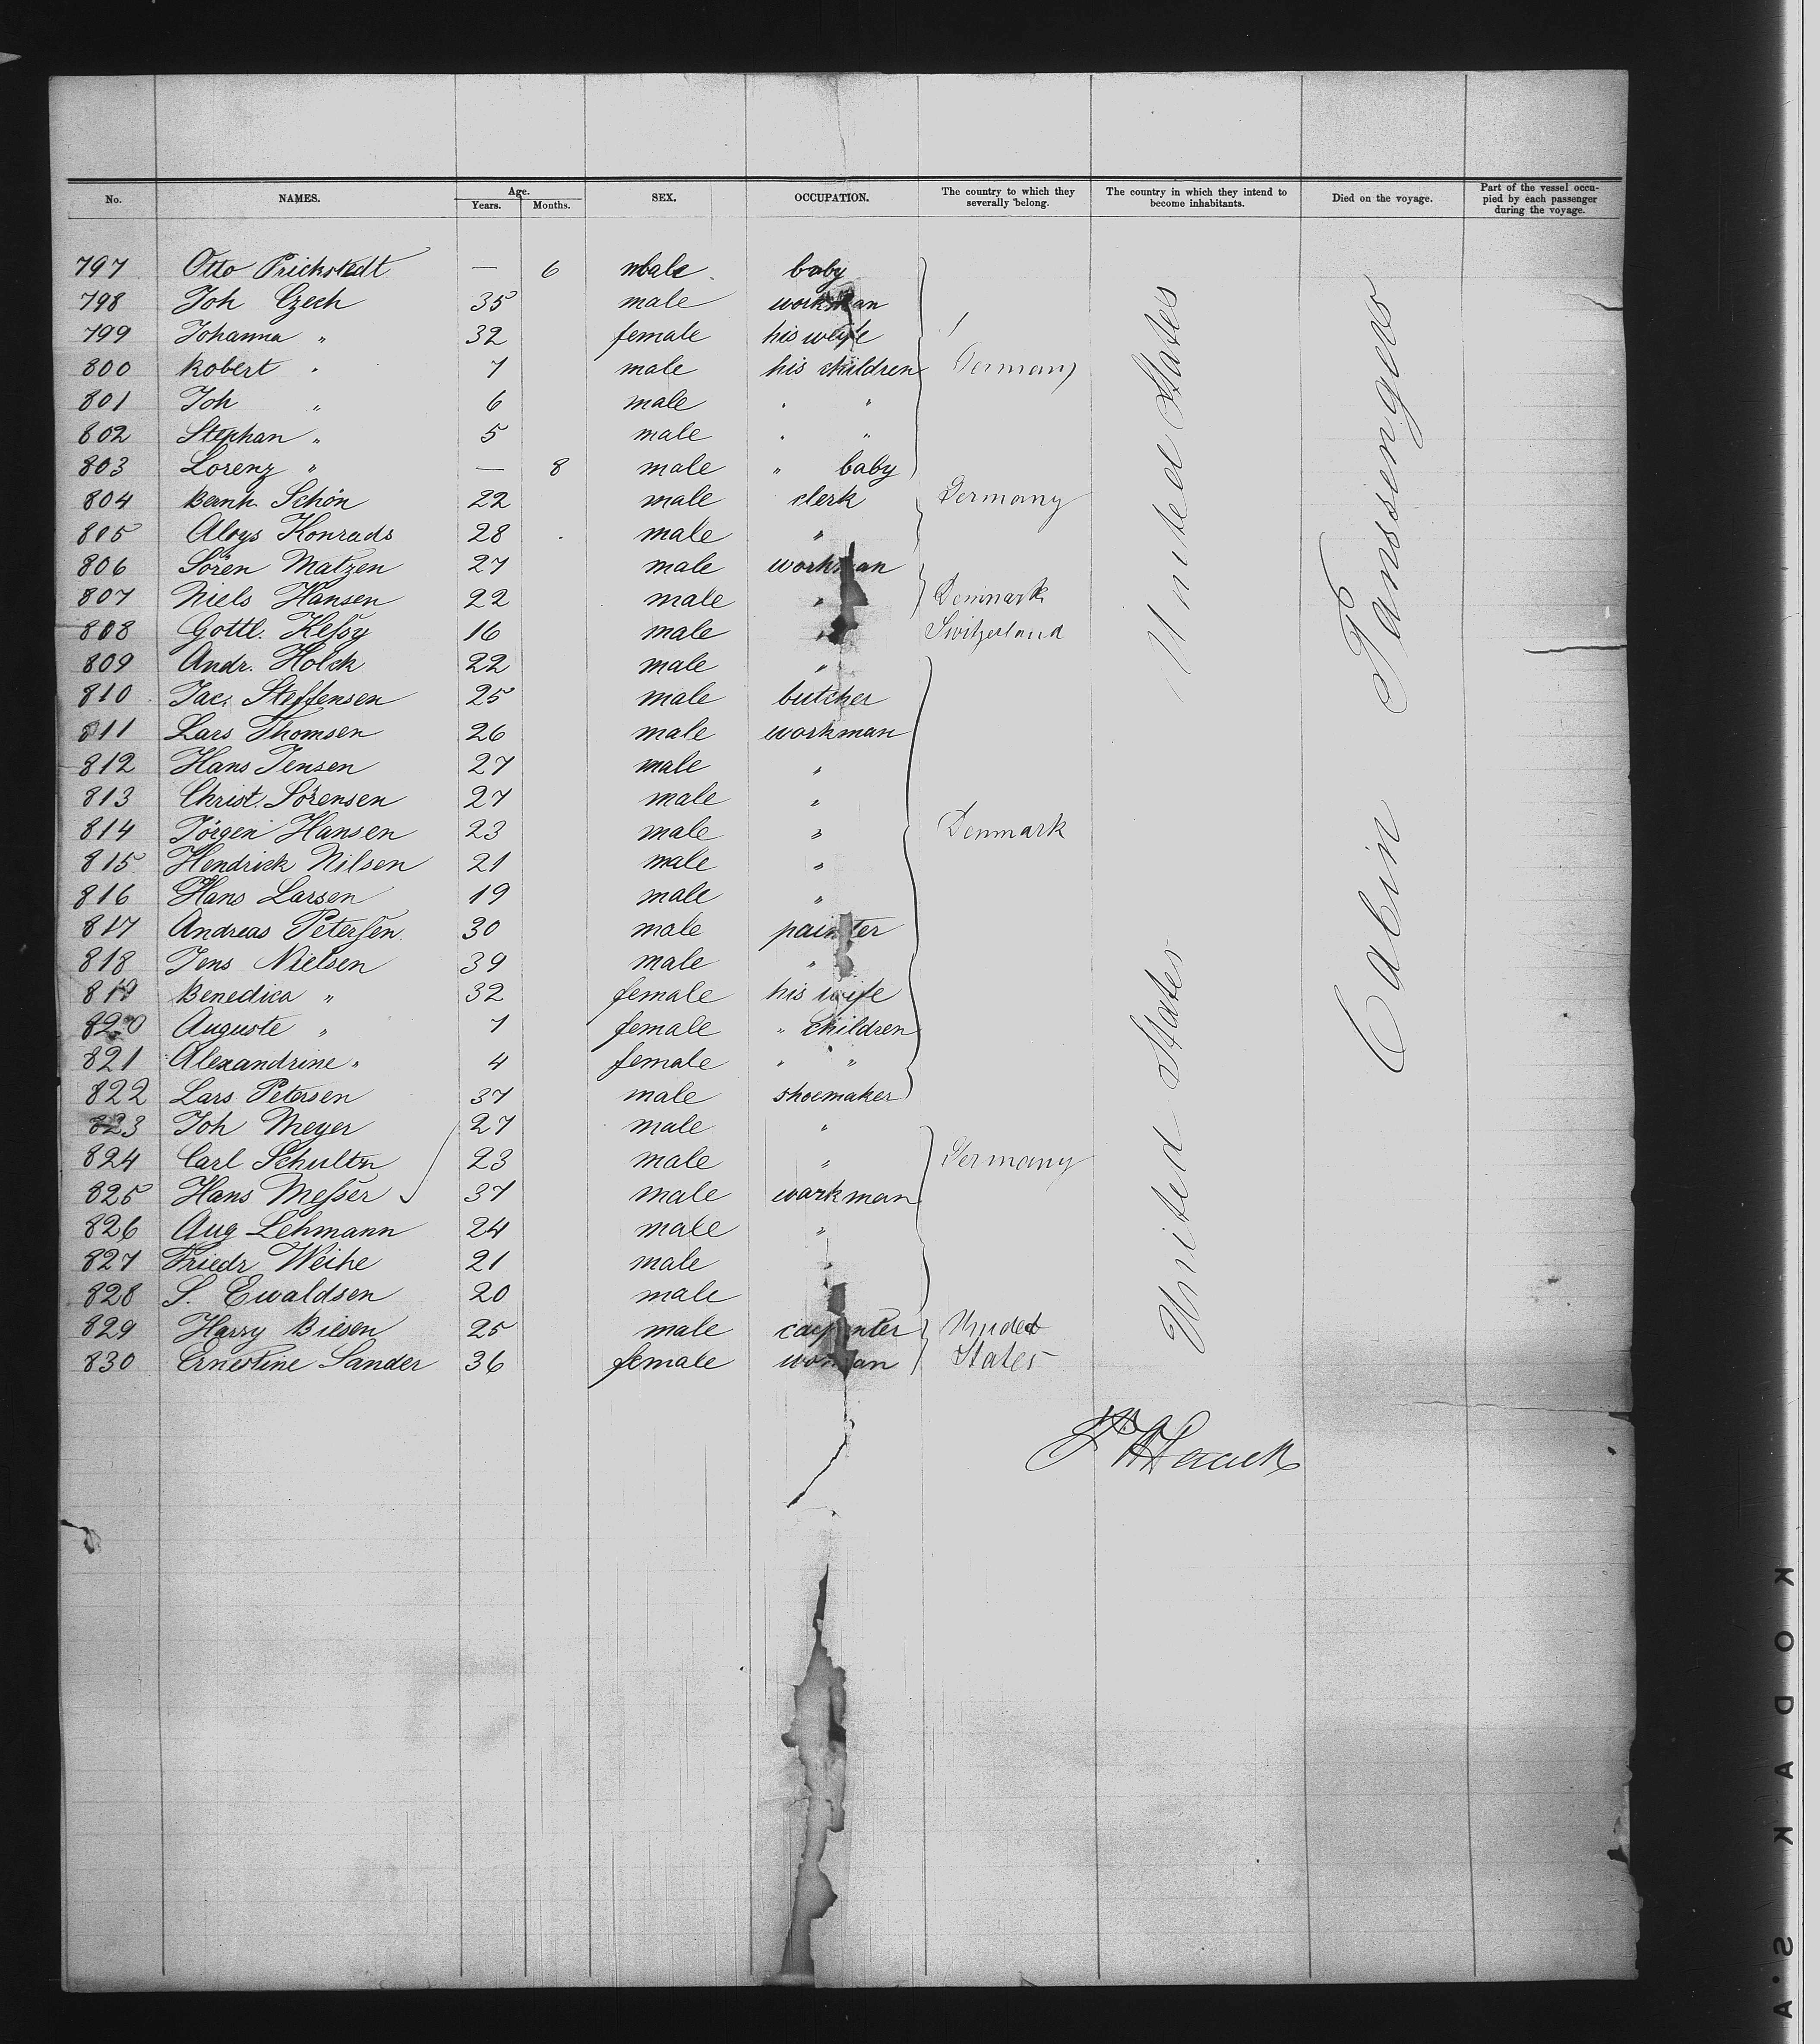 No. NAMES. Age. Years. Months. SEX. OCCUPATION. The country to which they severally belong. The country in which they intend to become inhabitants. Died on the voyage. Part of the vessel occupied by each passenger during the voyage.
797 Otto Prickstedt — 6 male baby
798 Joh Czech 35 male workman
799 Johanna " 32 female his weife
800 Robert " 7 male his children Germany
801 Joh " 6 male " "
802 Stephan " 5 male " "
803 Lorenz " — 8 male " baby
804 Bernh. Schön 22 male clerk Germany
805 Aloys Konrads 28 male "
806 Sören Matzen 27 male workman
807 Niels Hansen 22 male " Denmark
808 Gottl. Keſsy 16 male " Switzerland
809 Andr. Holck 22 male "
810 Jac. Steffensen 25 male butcher
811 Lars Thomsen 26 male workman
812 Hans Jensen 27 male "
813 Christ. Sörensen 27 male "
814 Jörgen Hansen 23 male " Denmark
815 Hendrick Nilsen 21 male "
816 Hans Larsen 19 male "
817 Andreas Peterſen 30 male painter
818 Jens Nielsen 39 male "
819 Benedica " 32 female his wife
820 Auguste " 7 female " children
821 Alexandrine " 4 female " "
822 Lars Petersen 37 male shoemaker
823 Joh Meyer 27 male "
824 Carl 23 male " Germany
825 Hans Meſser 37 male workman
826 Aug Lehmann 24 male "
827 Friedr Weihe 21 male "
828 S. Ewaldsen 20 male
829 Harry Biesen 25 male carpenter United
830 Ernestine Sander 36 female woman States
United States
United States
Cabin Passengers
KODAK S.A